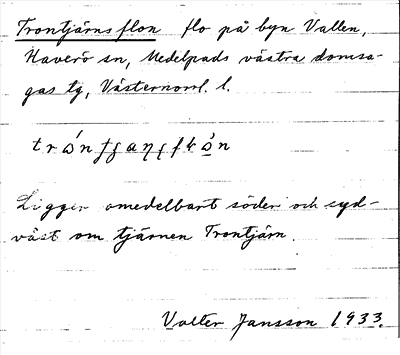 Trontjärnsflon flo på byn Vallen,
Haverö sn, Medelpads västra domsa-
gas tg, Västernorrl. l.
Ligger omedelbart söder och syd-
väst om tjärnen Trontjärn.
Valter Jansson 1933.